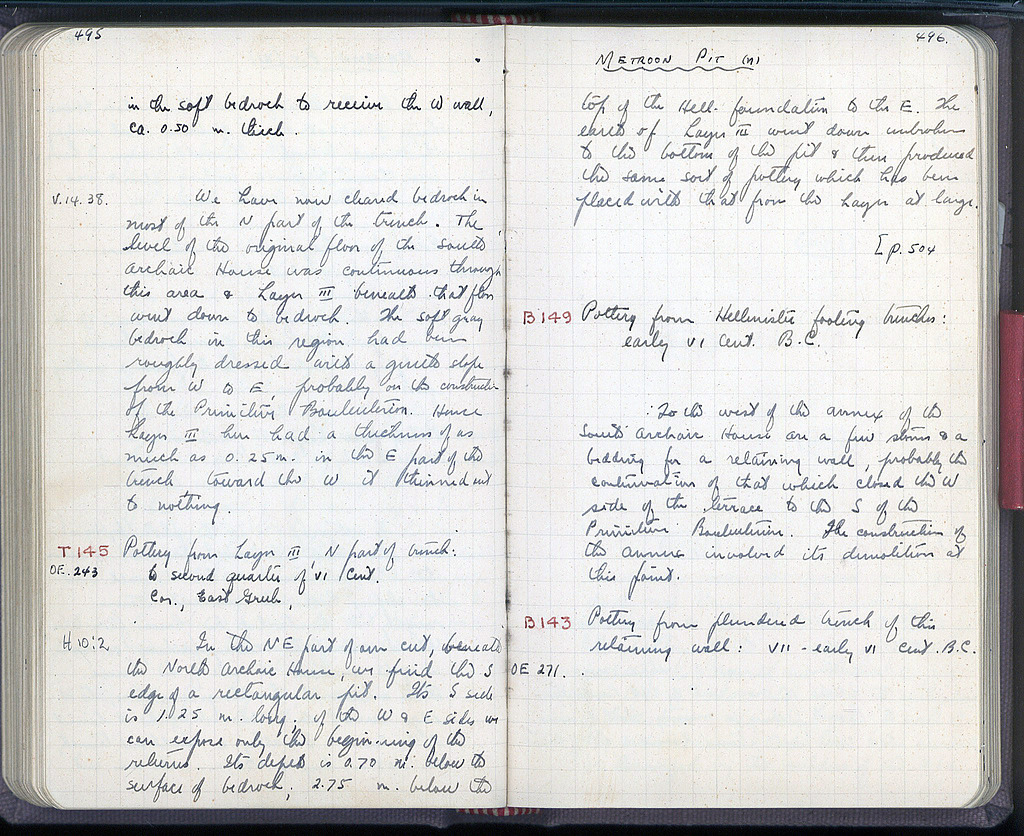 495
in the soft bedrock to receive the W wall,
ca. 0.50 m. thick.
V.14.38. We have now cleared bedrock in
most of the N part of the trench. The
level of the original floor of the South
Archaic House was continuous through
this area & Layer III beneath that floor
went down to bedrock. The soft gray
bedrock in this region had been
roughly dressed with a gentle slope
from W to E, probably on the construction
of the Primitive Bouleuterion. Hence
Layer III here had a thickness of as
much as 0.25 m. in the E part of the
trench toward the W it thinned out
to nothing.
T 145 Pottery from Layer III, N part of trench:
OE. 243 to second quarter of VI Cent.
Cor., East Greek,
H 10:2 In the NE part of our cut, beneath
the North Archaic House, we find the S
edge of a rectangular pit. Its S side
is 1.25 m. long; of the W & E sides we
can expose only the beginning of the
returns. Its depth is 0.70 m. below the
surface of bedrock, 2.75 m. below the
496.
METROON PIT (N)
top of the Hell. foundation to the E. The
earth of Layer III went down unbroken
to the bottom of the pit & there produced
the same sort of pottery which has been
placed with that from the Layer at large.
[p. 504
B 149 Pottery from Hellenistic footing trenches:
early VI Cent. B.C.
To the west of the annex of the
South Archaic House are a few stones & a
bedding for a retaining wall, probably the
continuation of that which closed the W
side of the terrace to the S of the
Primitive Bouleuterion. The construction of
the annex involved its demolition at
this point.
B 143 Pottery from plundered trench of this
retaining wall: VII - early VI Cent. B.C.
OE 271.